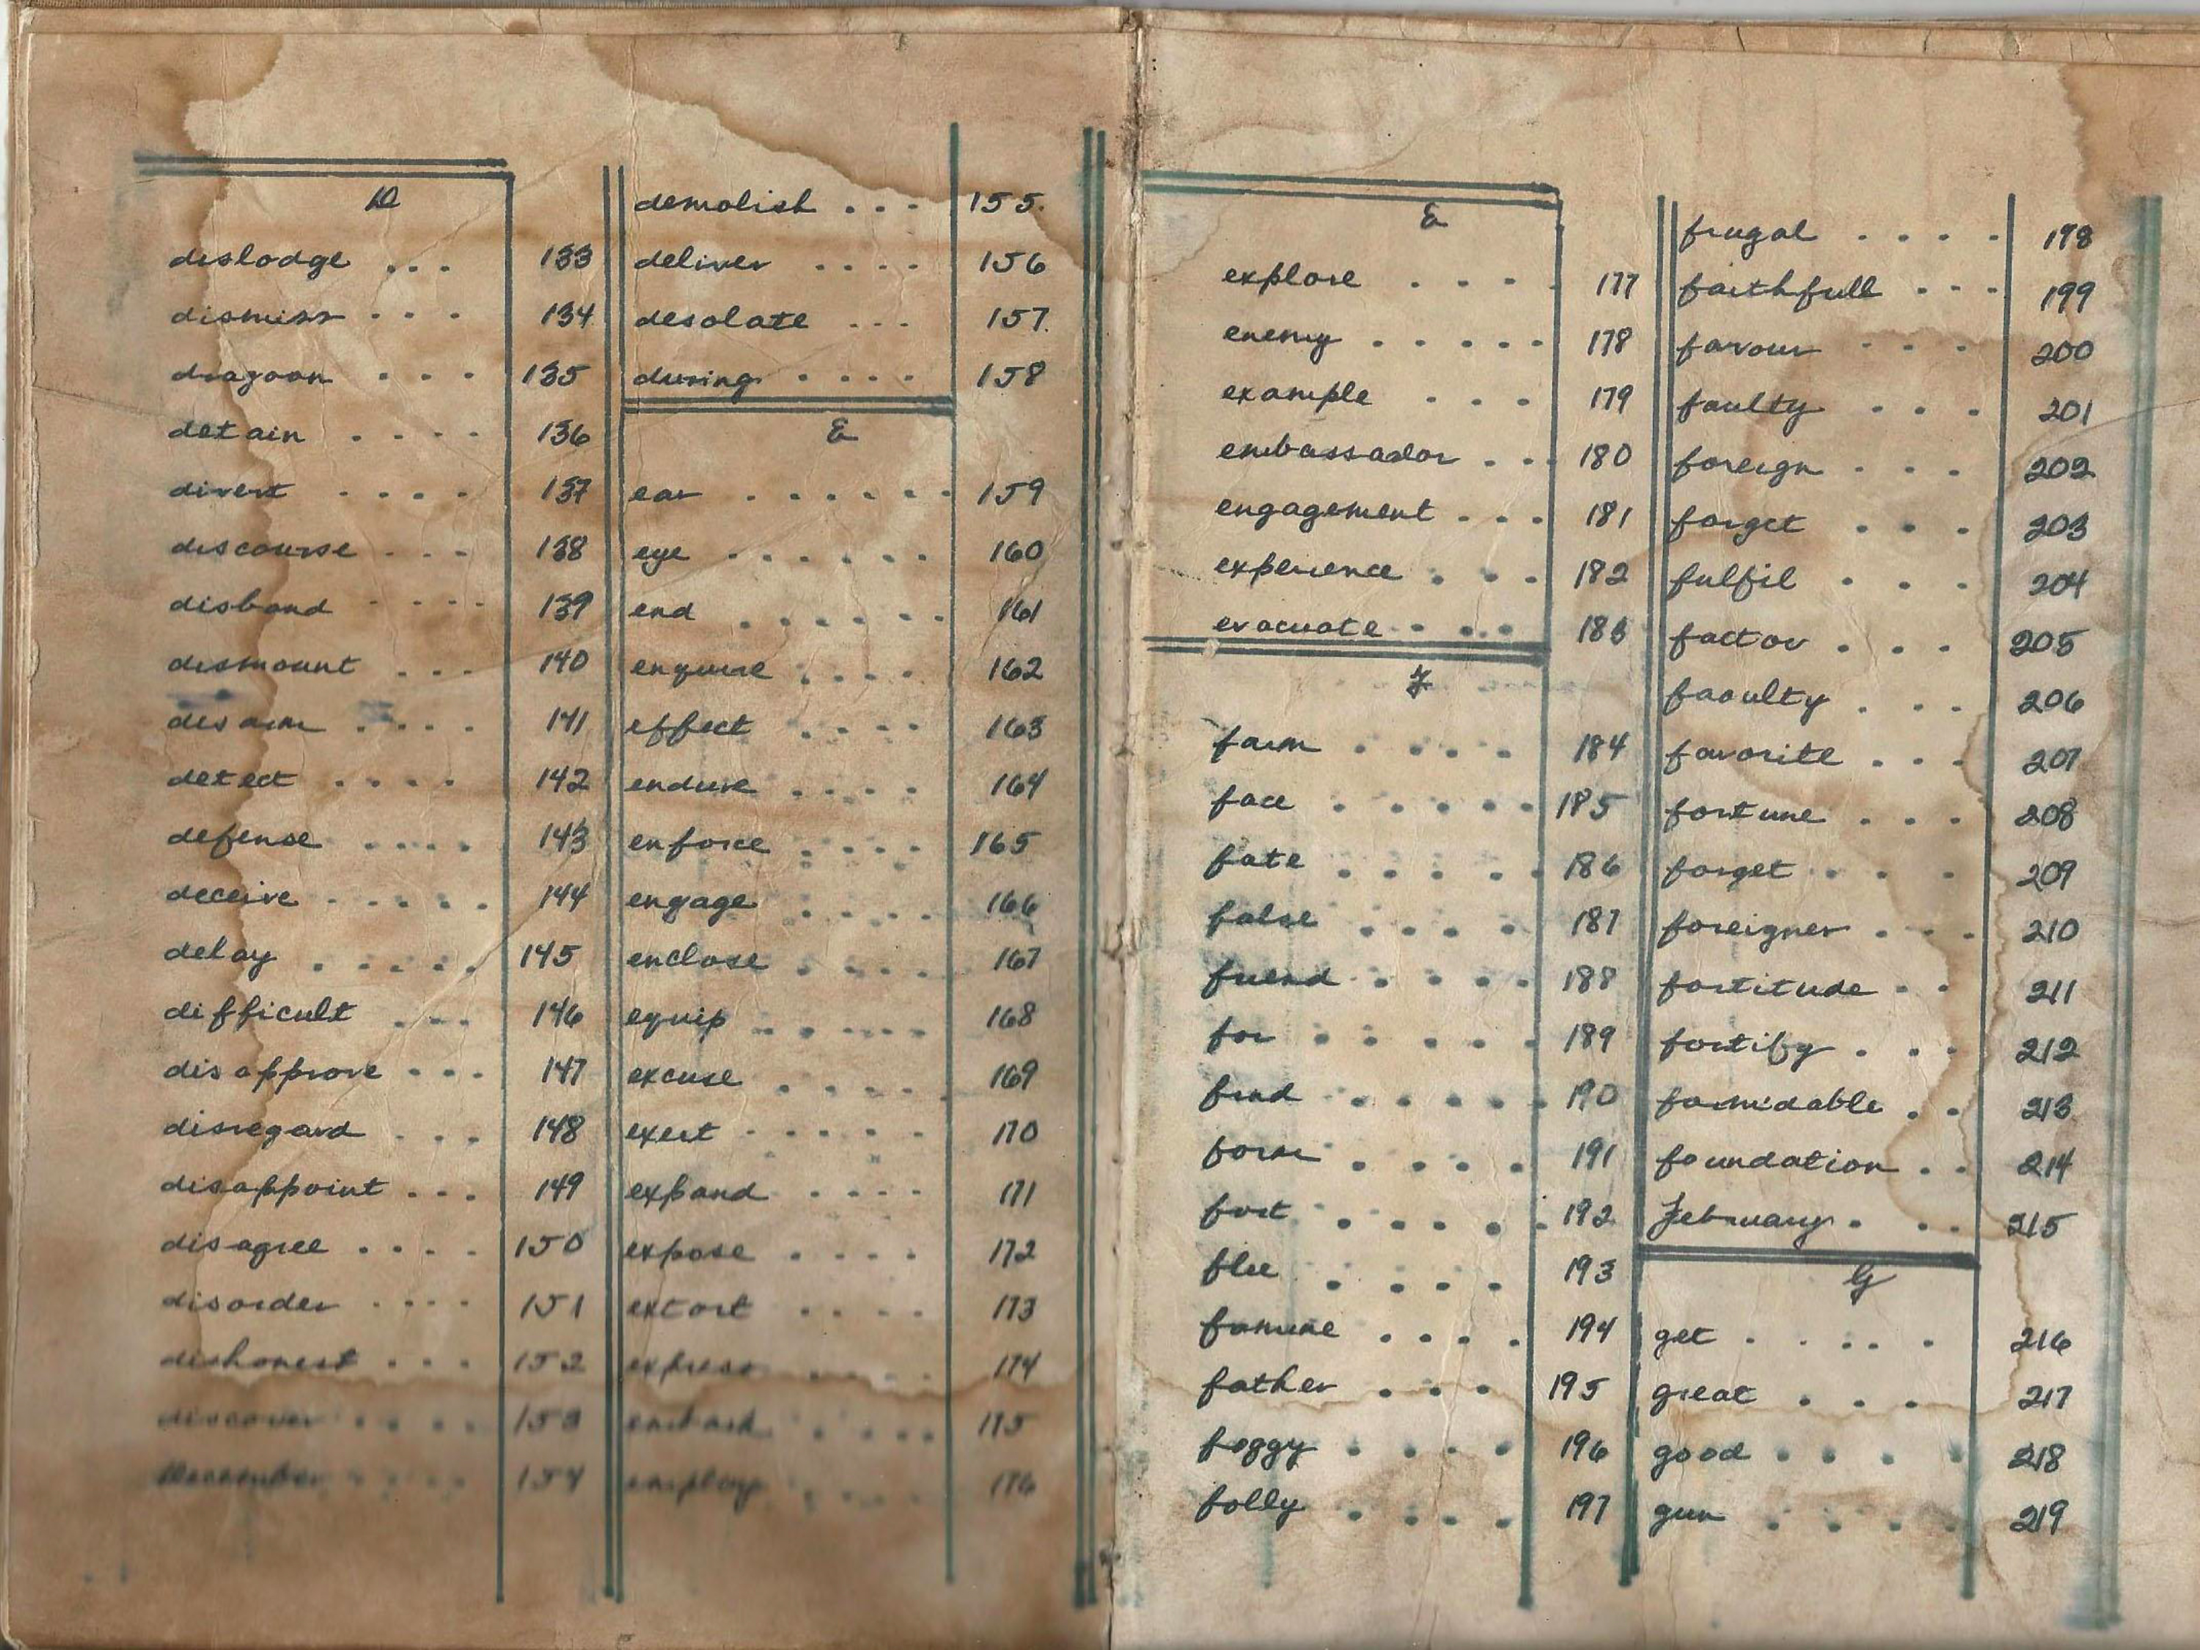 D
dislodge . . . 133
dismiss . . . 134
dragoon . . . 135
detain . . . . 136
divert . . . . 137
discourse . . . 138
disband . . . . 139
dismount . . . 140
disarm . . . . 141
detect . . . . 142
defense . . . . 143
deceive . . . . . 144
delay . . . . . 145
difficult . . . 146
disapprove . . . 147
disregard . . . 148
disappoint . . . 149
disagree . . . . 150
disorder . . . . 151
dishonest . . . 152
discover . . . . 153
December . . . . 154
demolish . . . 155.
deliver . . . . 156
desolate . . . 157.
during . . . . 158
E
ear . . . . . . 159
eye . . . . . . 160
end . . . . . . 161
enquire . . . . 162
effect . . . . 163
endure . . . . 164
enforce . . . . 165
engage . . . . 166
enclose . . . . 167
equip . . . . . 168
excuse . . . . 169
exert . . . . . 170
expand . . . . 171
expose . . . . 172
extort . . . . 173
express . . . . 174
embark . . . . 175
employ . . . . 176
E
explore . . . . 177
enemy . . . . . 178
example . . . 179
embassador . . . 180
engagement . . . 181
experience . . . 182
evacuate . . . 183
F
farm . . . . 184
face . . . . . 185
fate . . . . . 186
false . . . . 187
friend . . . . 188
for . . . . . 189
find . . . . . 190
form . . . . 191
fort . . . . . 192
flee . . . . 193
famine . . . . 194
father . . . 195
foggy . . . . 196
folly . . . . 197
frugal . . . . 198
faithfull . . . 199
favour . . . 200
faulty . . . 201
foreign . . . 202
forget . . . 203
fulfil . . . 204
factor . . . 205
faculty . . . 206
favorite . . . 207
fortune . . . 208
forget . . . 209
foreigner . . . 210
fortitude . . 211
fortify . . . 212
formidable . . 213
foundation . . 214
February . . . 215
G
get . . . . . 216
great . . . 217
good . . . . . 218
gun . . . . . 219